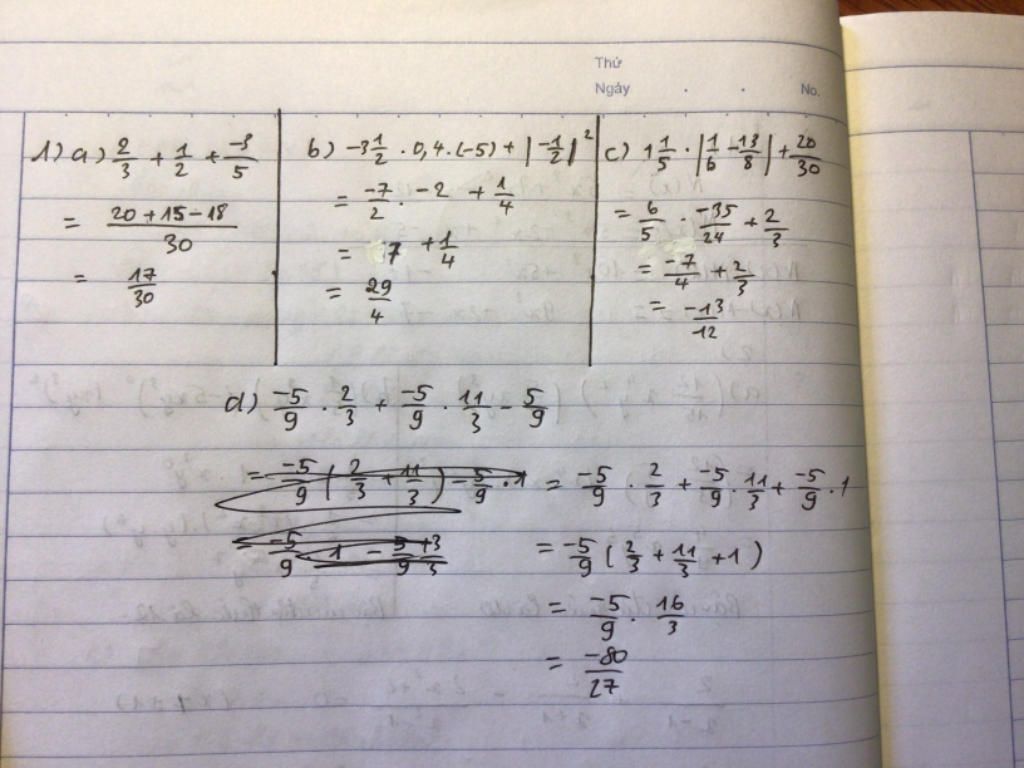 Thứ
Ngày . . No.
1) a) 2/3 + 1/2 + -3/5
= 20 + 15 - 18 / 30
= 17/30
b) -3 1/2 . 0,4 . (-5) + |-1/2|²
= -7/2 . -2 + 1/4
= 7 + 1/4
= 29/4
c) 1 1/5 . |1/6 - 13/8| + 20/30
= 6/5 . -35/24 + 2/3
= -7/4 + 2/3
= -13/12
d) -5/9 . 2/3 + -5/9 . 11/3 - 5/9
= -5/9 (2/3 + 11/3) - 5/9 . 1 = -5/9 . 2/3 + -5/9 . 11/3 + -5/9 . 1
= -5/9 (2/3 + 11/3 + 1)
= -5/9 . 16/3
= -80/27